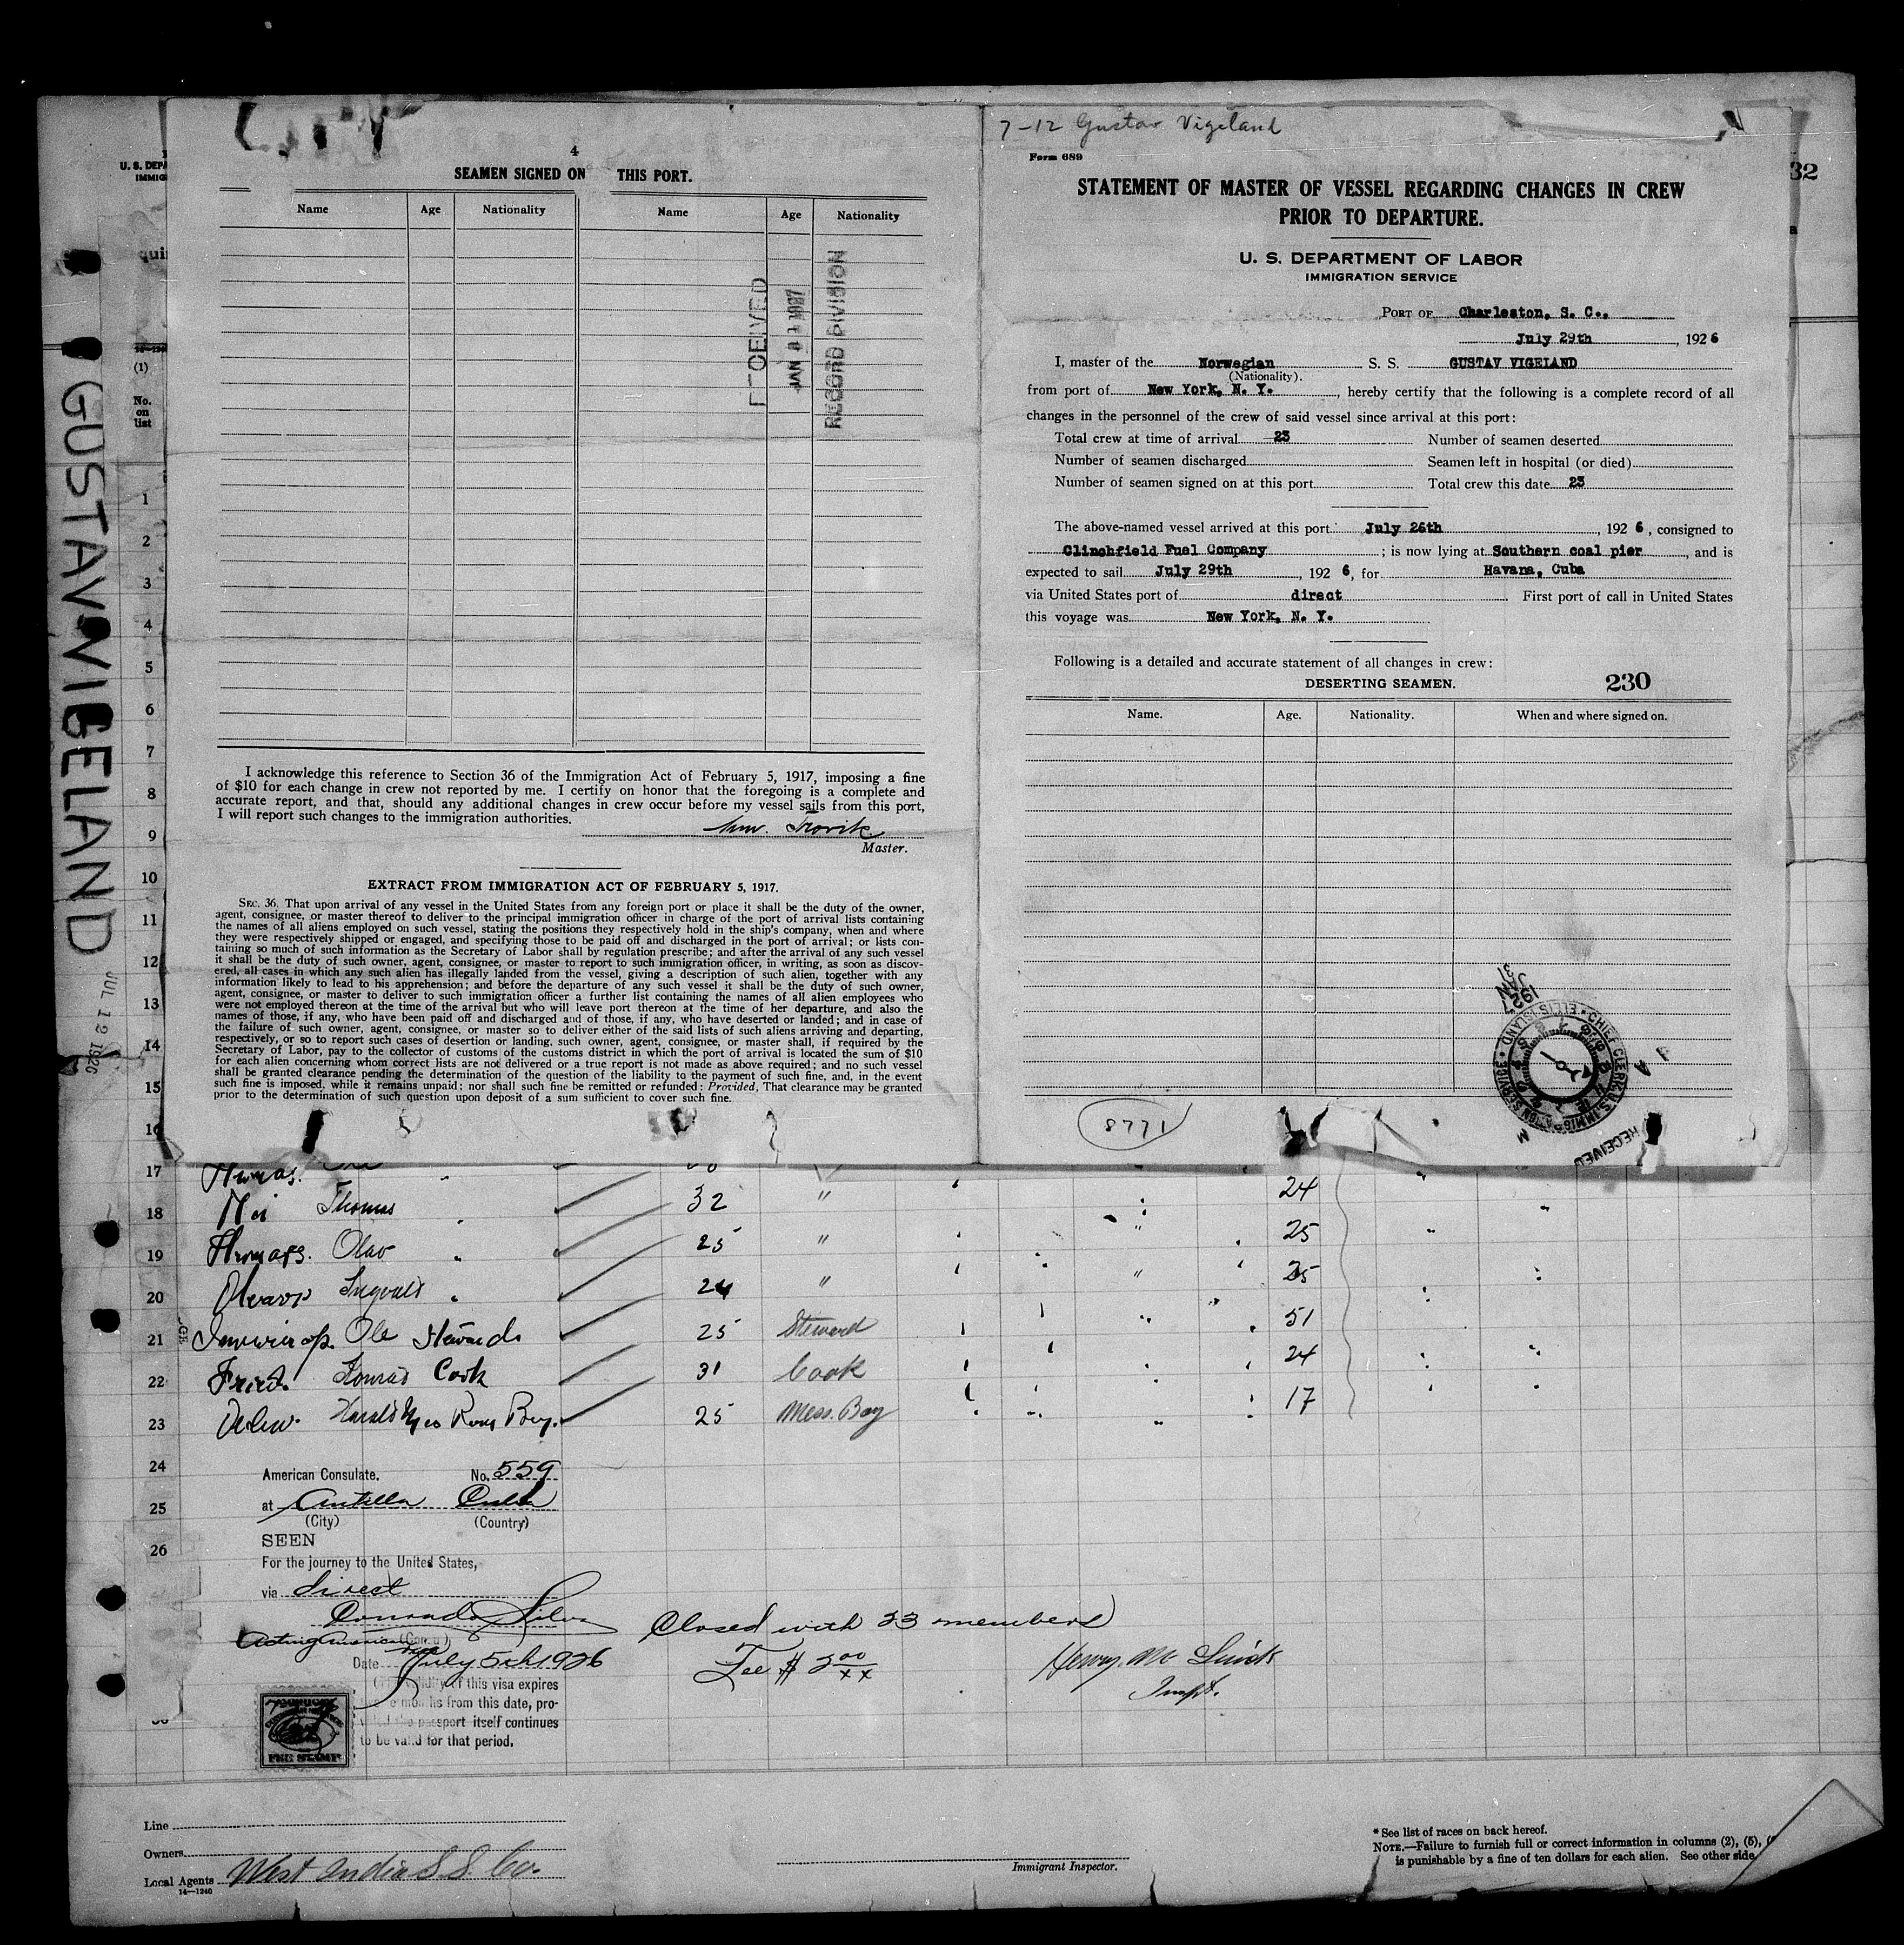 7-12 Gustav Vigeland
4
SEAMEN SIGNED ON THIS PORT.
Name Age Nationality Name Age Nationality
RECEIVED
JAN 31 1927
RECORD DIVISION
I acknowledge this reference to Section 36 of the Immigration Act of February 5, 1917, imposing a fine
of $10 for each change in crew not reported by me. I certify on honor that the foregoing is a complete and
accurate report, and that, should any additional changes in crew occur before my vessel sails from this port,
I will report such changes to the immigration authorities.
Master.
EXTRACT FROM IMMIGRATION ACT OF FEBRUARY 5, 1917.
SEC. 36. That upon arrival of any vessel in the United States from any foreign port or place it shall be the duty of the owner,
agent, consignee, or master thereof to deliver to the principal immigration officer in charge of the port of arrival lists containing
the names of all aliens employed on such vessel, stating the positions they respectively hold in the ship's company, when and where
they were respectively shipped or engaged, and specifying those to be paid off and discharged in the port of arrival; or lists con-
taining so much of such information as the Secretary of Labor shall by regulation prescribe; and after the arrival of any such vessel
it shall be the duty of such owner, agent, consignee, or master to report to such immigration officer, in writing, as soon as discov-
ered, all cases in which any such alien has illegally landed from the vessel, giving a description of such alien, together with any
information likely to lead to his apprehension; and before the departure of any such vessel it shall be the duty of such owner,
agent, consignee, or master to deliver to such immigration officer a further list containing the names of all alien employees who
were not employed thereon at the time of the arrival but who will leave port thereon at the time of her departure, and also the
names of those, if any, who have been paid off and discharged and of those, if any, who have deserted or landed; and in case of
the failure of such owner, agent, consignee, or master so to deliver either of the said lists of such aliens arriving and departing,
respectively, or so to report such cases of desertion or landing, such owner, agent, consignee, or master shall, if required by the
Secretary of Labor, pay to the collector of customs of the customs district in which the port of arrival is located the sum of $10
for each alien concerning whom correct lists are not delivered or a true report is not made as above required; and no such vessel
shall be granted clearance pending the determination of the question of the liability to the payment of such fine, and, in the event
such fine is imposed, while it remains unpaid; nor shall such fine be remitted or refunded: Provided, That clearance may be granted
prior to the determination of such question upon deposit of a sum sufficient to cover such fine.
Form 689
STATEMENT OF MASTER OF VESSEL REGARDING CHANGES IN CREW
PRIOR TO DEPARTURE.
U. S. DEPARTMENT OF LABOR
IMMIGRATION SERVICE
PORT OF Charleston, S. C.,
July 29th, 1926
I, master of the Norwegian S. S. GUSTAV VIGELAND
(Nationality).
from port of New York, N. Y., hereby certify that the following is a complete record of all
changes in the personnel of the crew of said vessel since arrival at this port:
Total crew at time of arrival 23 Number of seamen deserted
Number of seamen discharged Seamen left in hospital (or died)
Number of seamen signed on at this port Total crew this date 23
The above-named vessel arrived at this port July 26th, 1926, consigned to
Clinchfield Fuel Company; is now lying at Southern coal pier, and is
expected to sail July 29th, 1926, for Havana, Cuba
via United States port of direct First port of call in United States
this voyage was New York, N. Y.
Following is a detailed and accurate statement of all changes in crew:
DESERTING SEAMEN. 230
Name. Age. Nationality. When and where signed on.
8771
JAN 31 1927
CHIEF CLERK U.S. IMMIGRATION SERVICE ELLIS ISLAND
RECEIVED
U. S. DEPA
IMMIG
32
quir
(1)
No.
on
list
GUSTAV VIGELAND
JUL 12 1926
1
2
3
4
5
6
7
8
9
10
11
12
13
14
15
16
17
18 Thomas 32 " 24
19 Olav 25 " 25
20 24 " 25
21 Ole 25 Steward 51
22 Konrad Cook 31 Cook 24
23 Harald 25 Mess. Boy 17
24
25
26
American Consulate. No. 559
at Antilla Cuba
(City) (Country)
SEEN
For the journey to the United States,
via direct
Conrado Silva
Acting American
Date July 5th 1926
if this visa expires
from this date, pro-
passport itself continues
to be valid for that period.
FEE STAMP
Closed with 23 members
Fee $ 2 00/xx
Line
Owners
Local Agents West India S.S. Co.
14—1240
Immigrant Inspector.
* See list of races on back hereof.
NOTE.—Failure to furnish full or correct information in columns (2), (5),
is punishable by a fine of ten dollars for each alien. See other side.